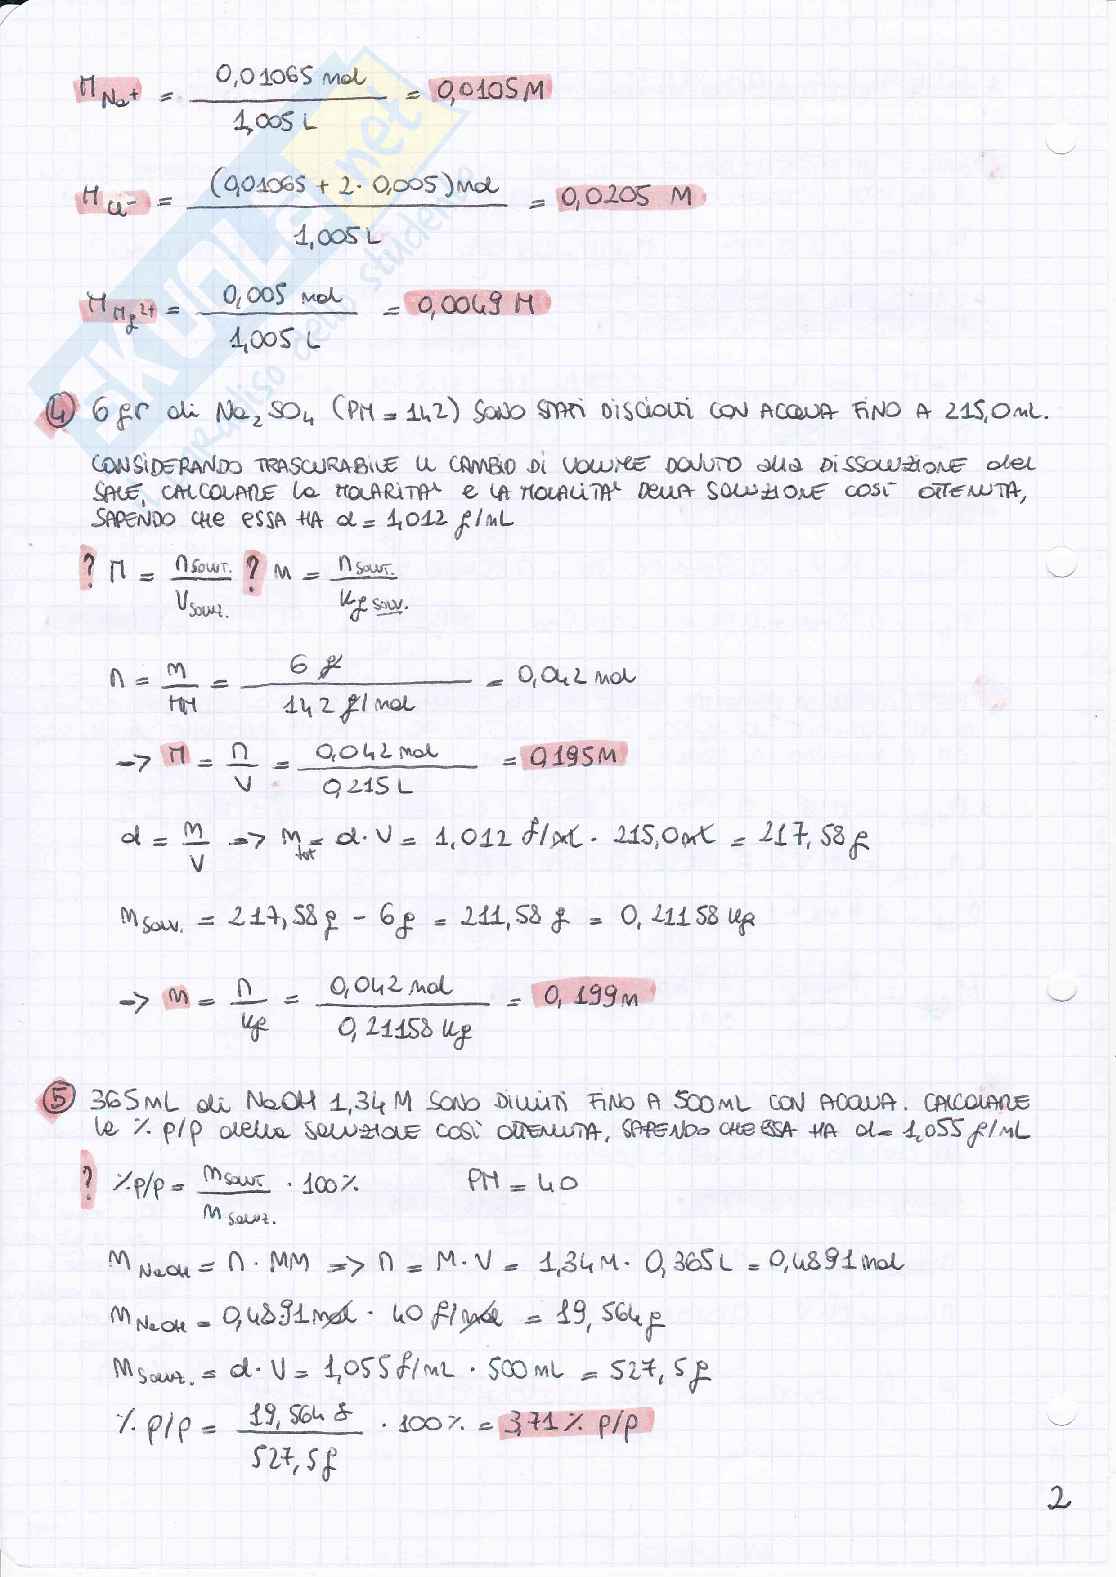 M Na+ = 0,01065 mol / 1,005 L = 0,0105 M
M Cl- = (0,01065 + 2 · 0,005) mol / 1,005 L = 0,0205 M
M Mg2+ = 0,005 mol / 1,005 L = 0,0049 M
SKUOLA.net
paradiso dello studente
4 6 gr di Na2SO4 (PM = 142) SONO STATI DISCIOLTI CON ACQUA FINO A 215,0 mL.
CONSIDERANDO TRASCURABILE IL CAMBIO DI VOLUME DOVUTO alla DISSOLUZIONE del
SALE, CALCOLARE la MOLARITA' e LA MOLALITA' DELLA SOLUZIONE COSÌ OTTENUTA,
SAPENDO CHE ESSA HA d = 1,012 g/mL
? M = n solut. / V soluz. ? m = n solut. / Kg solv.
n = m / MM = 6 g / 142 g/mol = 0,042 mol
-> M = n / V = 0,042 mol / 0,215 L = 0,195 M
d = m / V => m tot = d · V = 1,012 g/mL · 215,0 mL = 217,58 g
m solv. = 217,58 g - 6 g = 211,58 g = 0,21158 Kg
-> m = n / Kg = 0,042 mol / 0,21158 Kg = 0,199 m
5 365 mL di NaOH 1,34 M SONO DILUITI FINO A 500 mL CON ACQUA. CALCOLARE
la % p/p della SOLUZIONE COSÌ OTTENUTA, SAPENDO CHE ESSA HA d = 1,055 g/mL
? % p/p = m solut. / m soluz. · 100% PM = 40
m NaOH = n · MM => n = M · V = 1,34 M · 0,365 L = 0,4891 mol
m NaOH = 0,4891 mol · 40 g/mol = 19,564 g
m soluz. = d · V = 1,055 g/mL · 500 mL = 527,5 g
% p/p = 19,564 g / 527,5 g · 100% = 3,71 % p/p
2